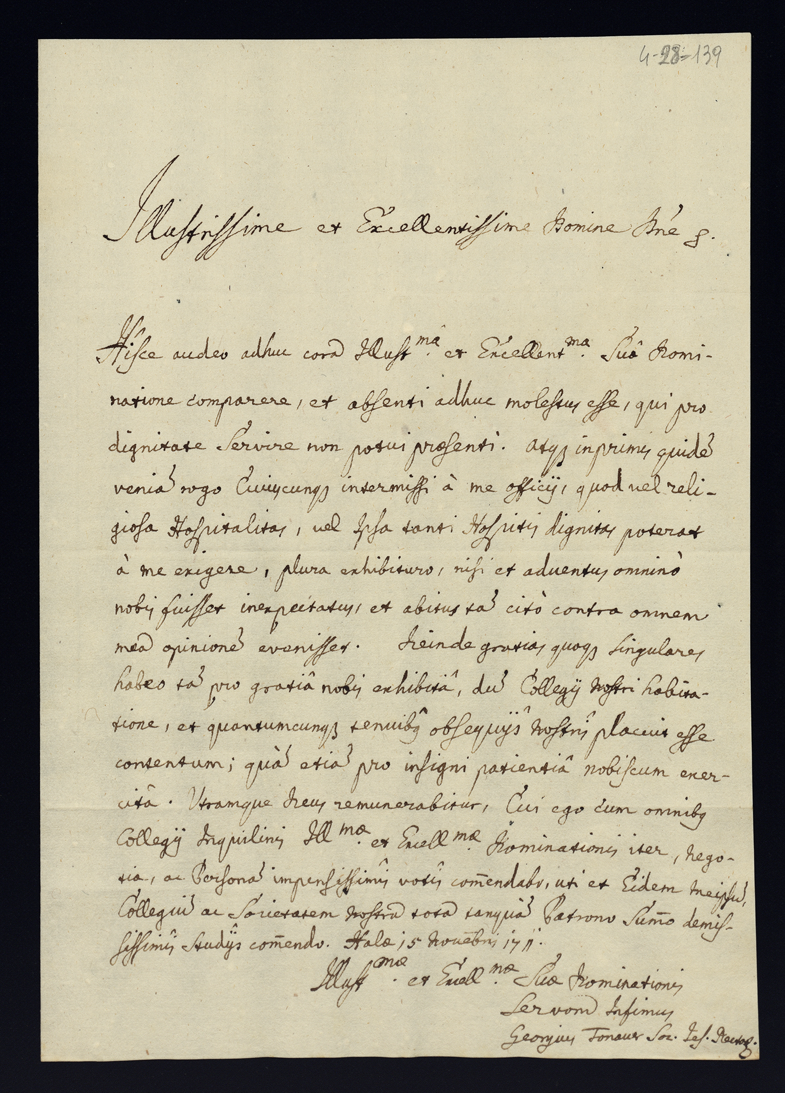 4-28-139
Illustrissime et Excellentissime Domine Dne &.
Hisce audeo adhuc corā Illustmâ. et Excellentmâ. Suâ Domi-
natione comparere, et absenti adhuc molestus esse, qui pro
dignitate servire non potui præsenti. Atqȝ inprimis quidē
veniā rogo Cuiuscunqȝ intermissi à me officij, quod vel reli-
giosa Hospitalitas, vel Ipsa tanti Hospitis dignitas poterat
à me exigere, plura exhibituro, nisi et adventus omninò
nobis fuisset inexpectatus, et abitus tā citò contra omnem
meā opinionē evenisset. Deinde gratias quoqȝ singulares
habeo tā pro gratiâ nobis exhibitâ, dū Collegij nostri habita-
tione, et quantumcunqȝ tenuibȝ obsequijs nostris placuit esse
contentum; quā etiā pro insigni patientiâ nobiscum exer-
citâ. Utramque Deus remunerabitur, Cui ego cum omnibȝ
Collegij Inquilinis Illmæ. et Excellmæ. Dominationis iter, nego-
tia, ac Personā impensissimis votis com̄endabo, uti et Eidem meipsū,
Collegiū ac Societatem nostrā totā tanquā Patrono Sum̄o demis-
sissimis studijs com̄endo. Halæ 15 Novēbris 1711.
Illustmæ. et Excellmæ. Suæ Dominationis
Servorū Infimus
Georgius Tonauer Soc. Jes. Rector.